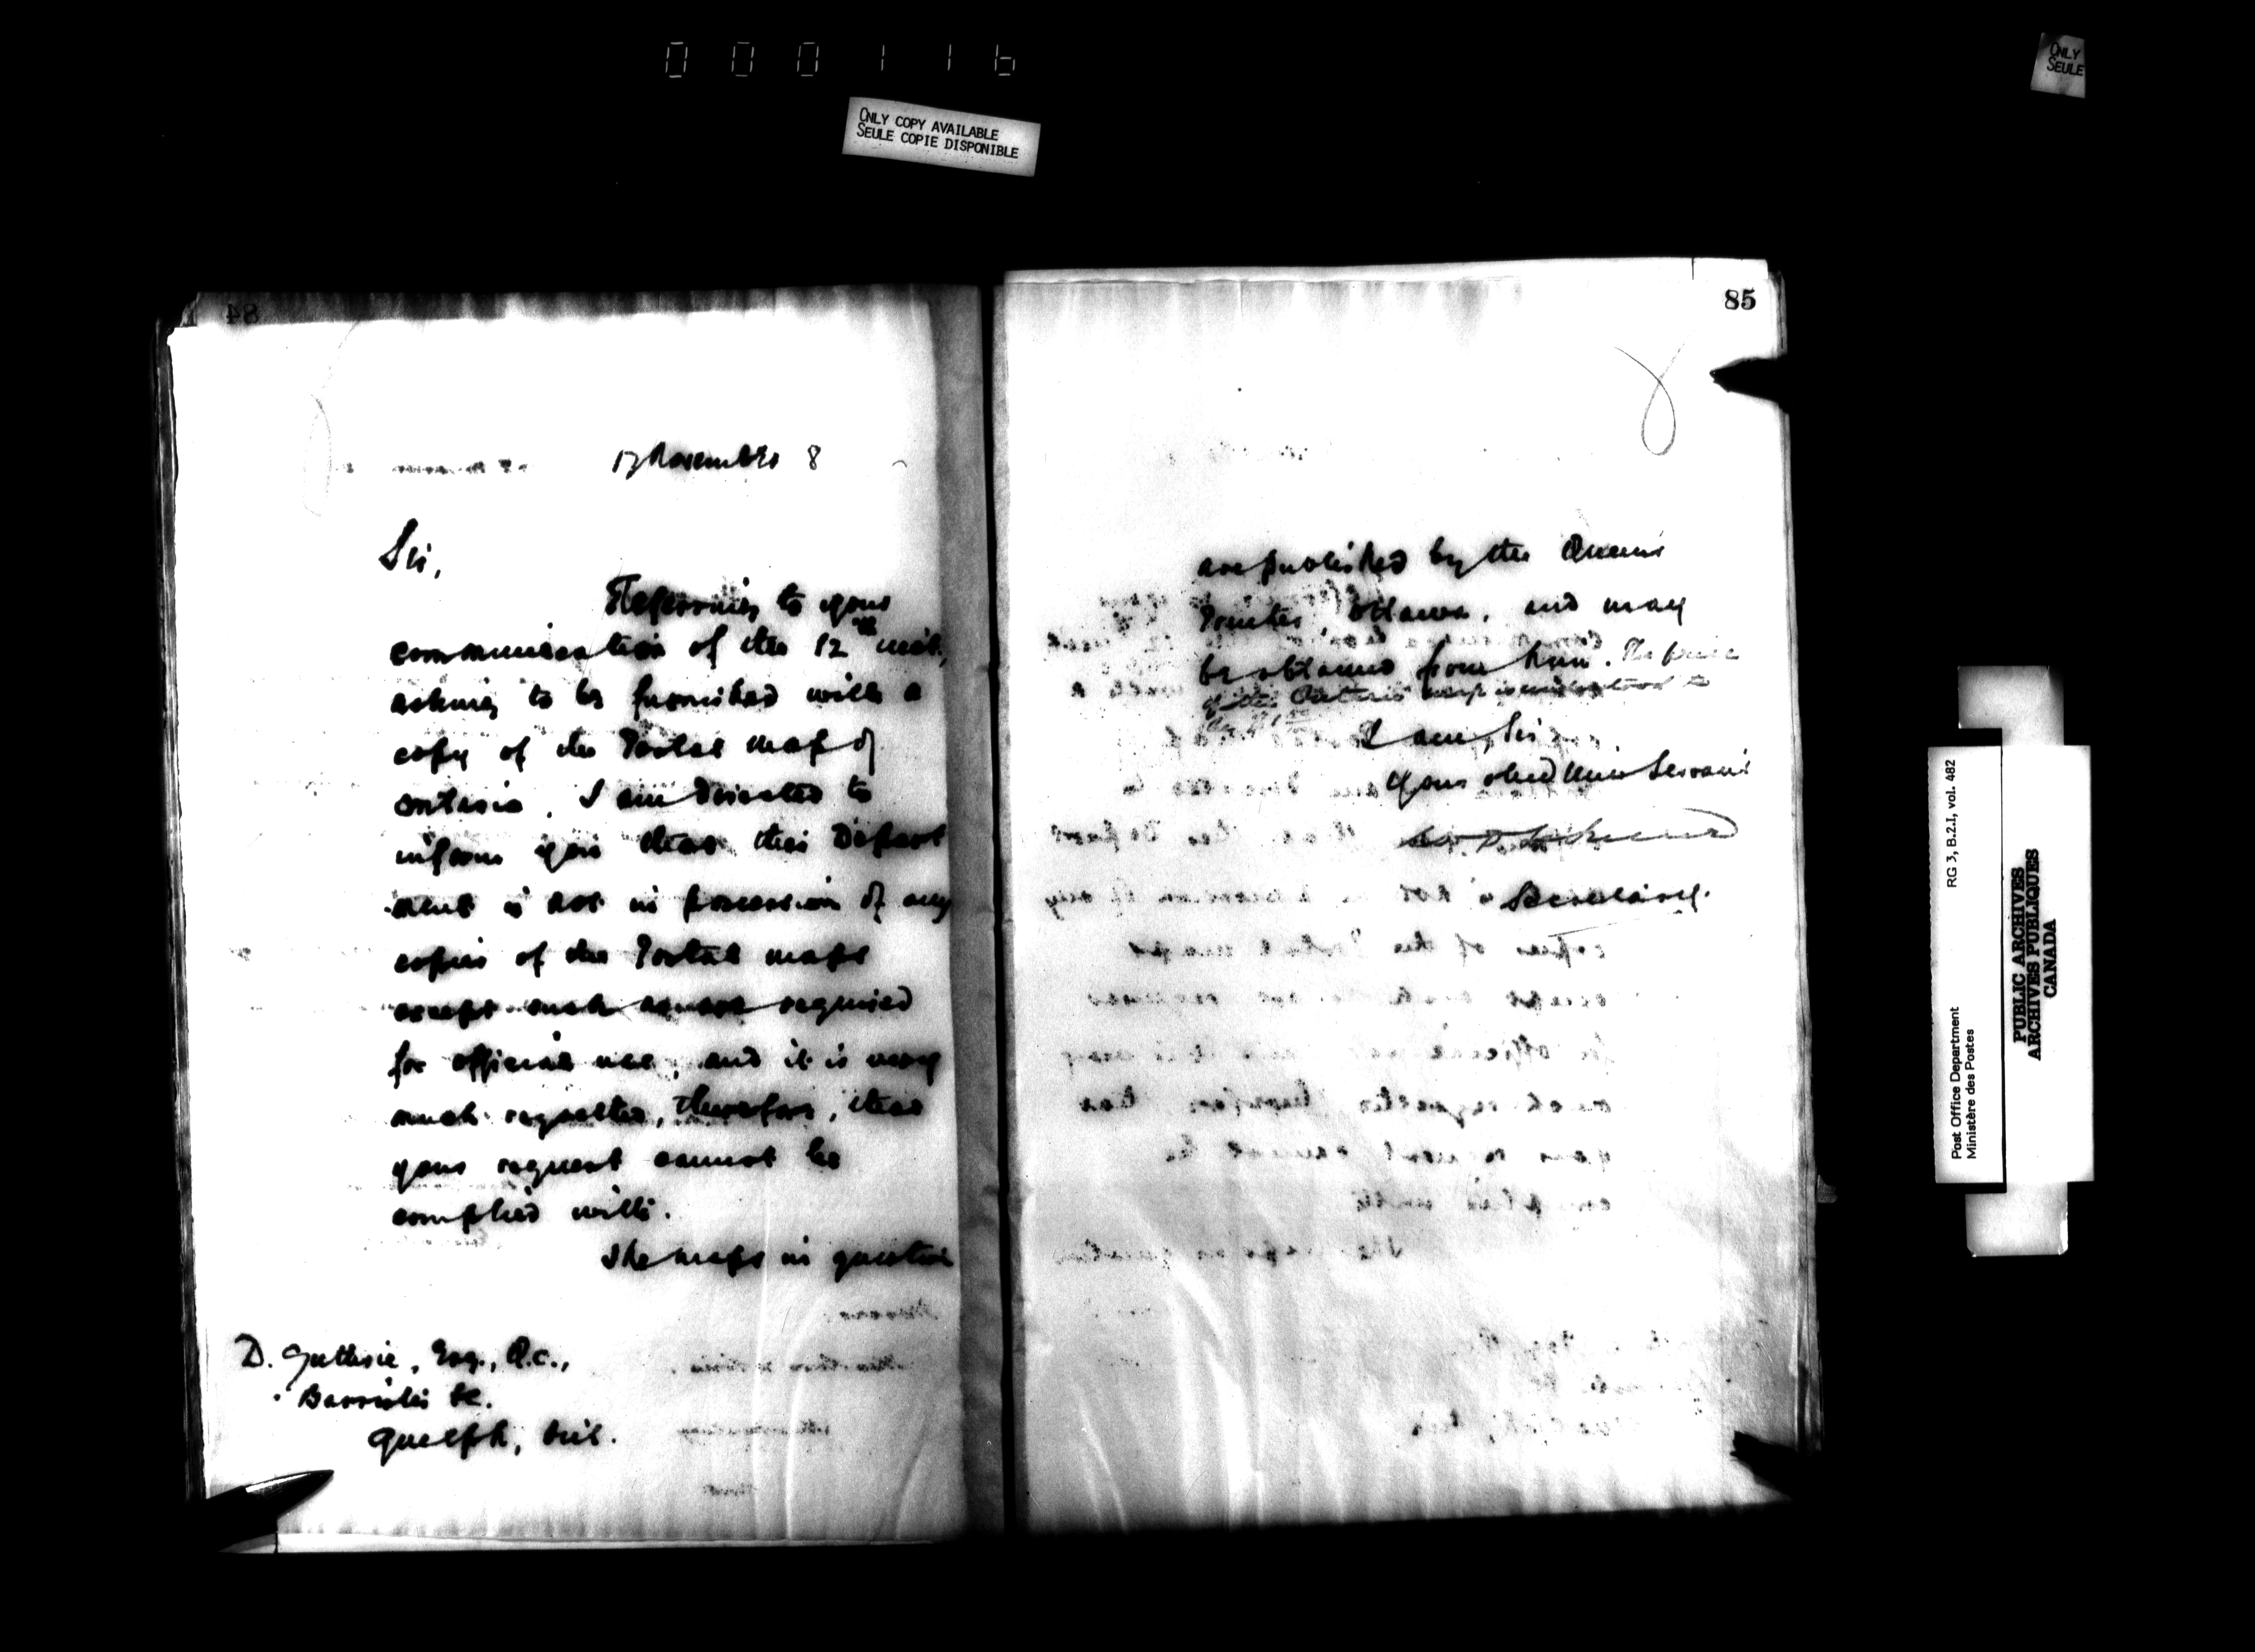 000116
ONLY COPY AVAILABLE
SEULE COPIE DISPONIBLE
ONLY
SEULE
84
17 November 8
Sir,
Referring to your
communication of the 12th inst.,
asking to be furnished with a
copy of the Postal map of
Ontario, I am directed to
inform you that this Depart
ment is not in possession of any
copies of the Postal maps
except such as are required
for official use, and it is very
much regretted, therefore, that
your request cannot be
complied with.
The maps in question
D. Guthrie, Esq., Q.C.,
Barrister &c.
Guelph, Ont.
85
are published by the Queen's
Printer, Ottawa, and may
be obtained from him. The price
of the Ontario map is understood to
be $1.50
I am, Sir
Your obedient Servant
Secretary.
RG 3, B.2.I, vol. 482
Post Office Department
Ministère des Postes
PUBLIC ARCHIVES
ARCHIVES PUBLIQUES
CANADA